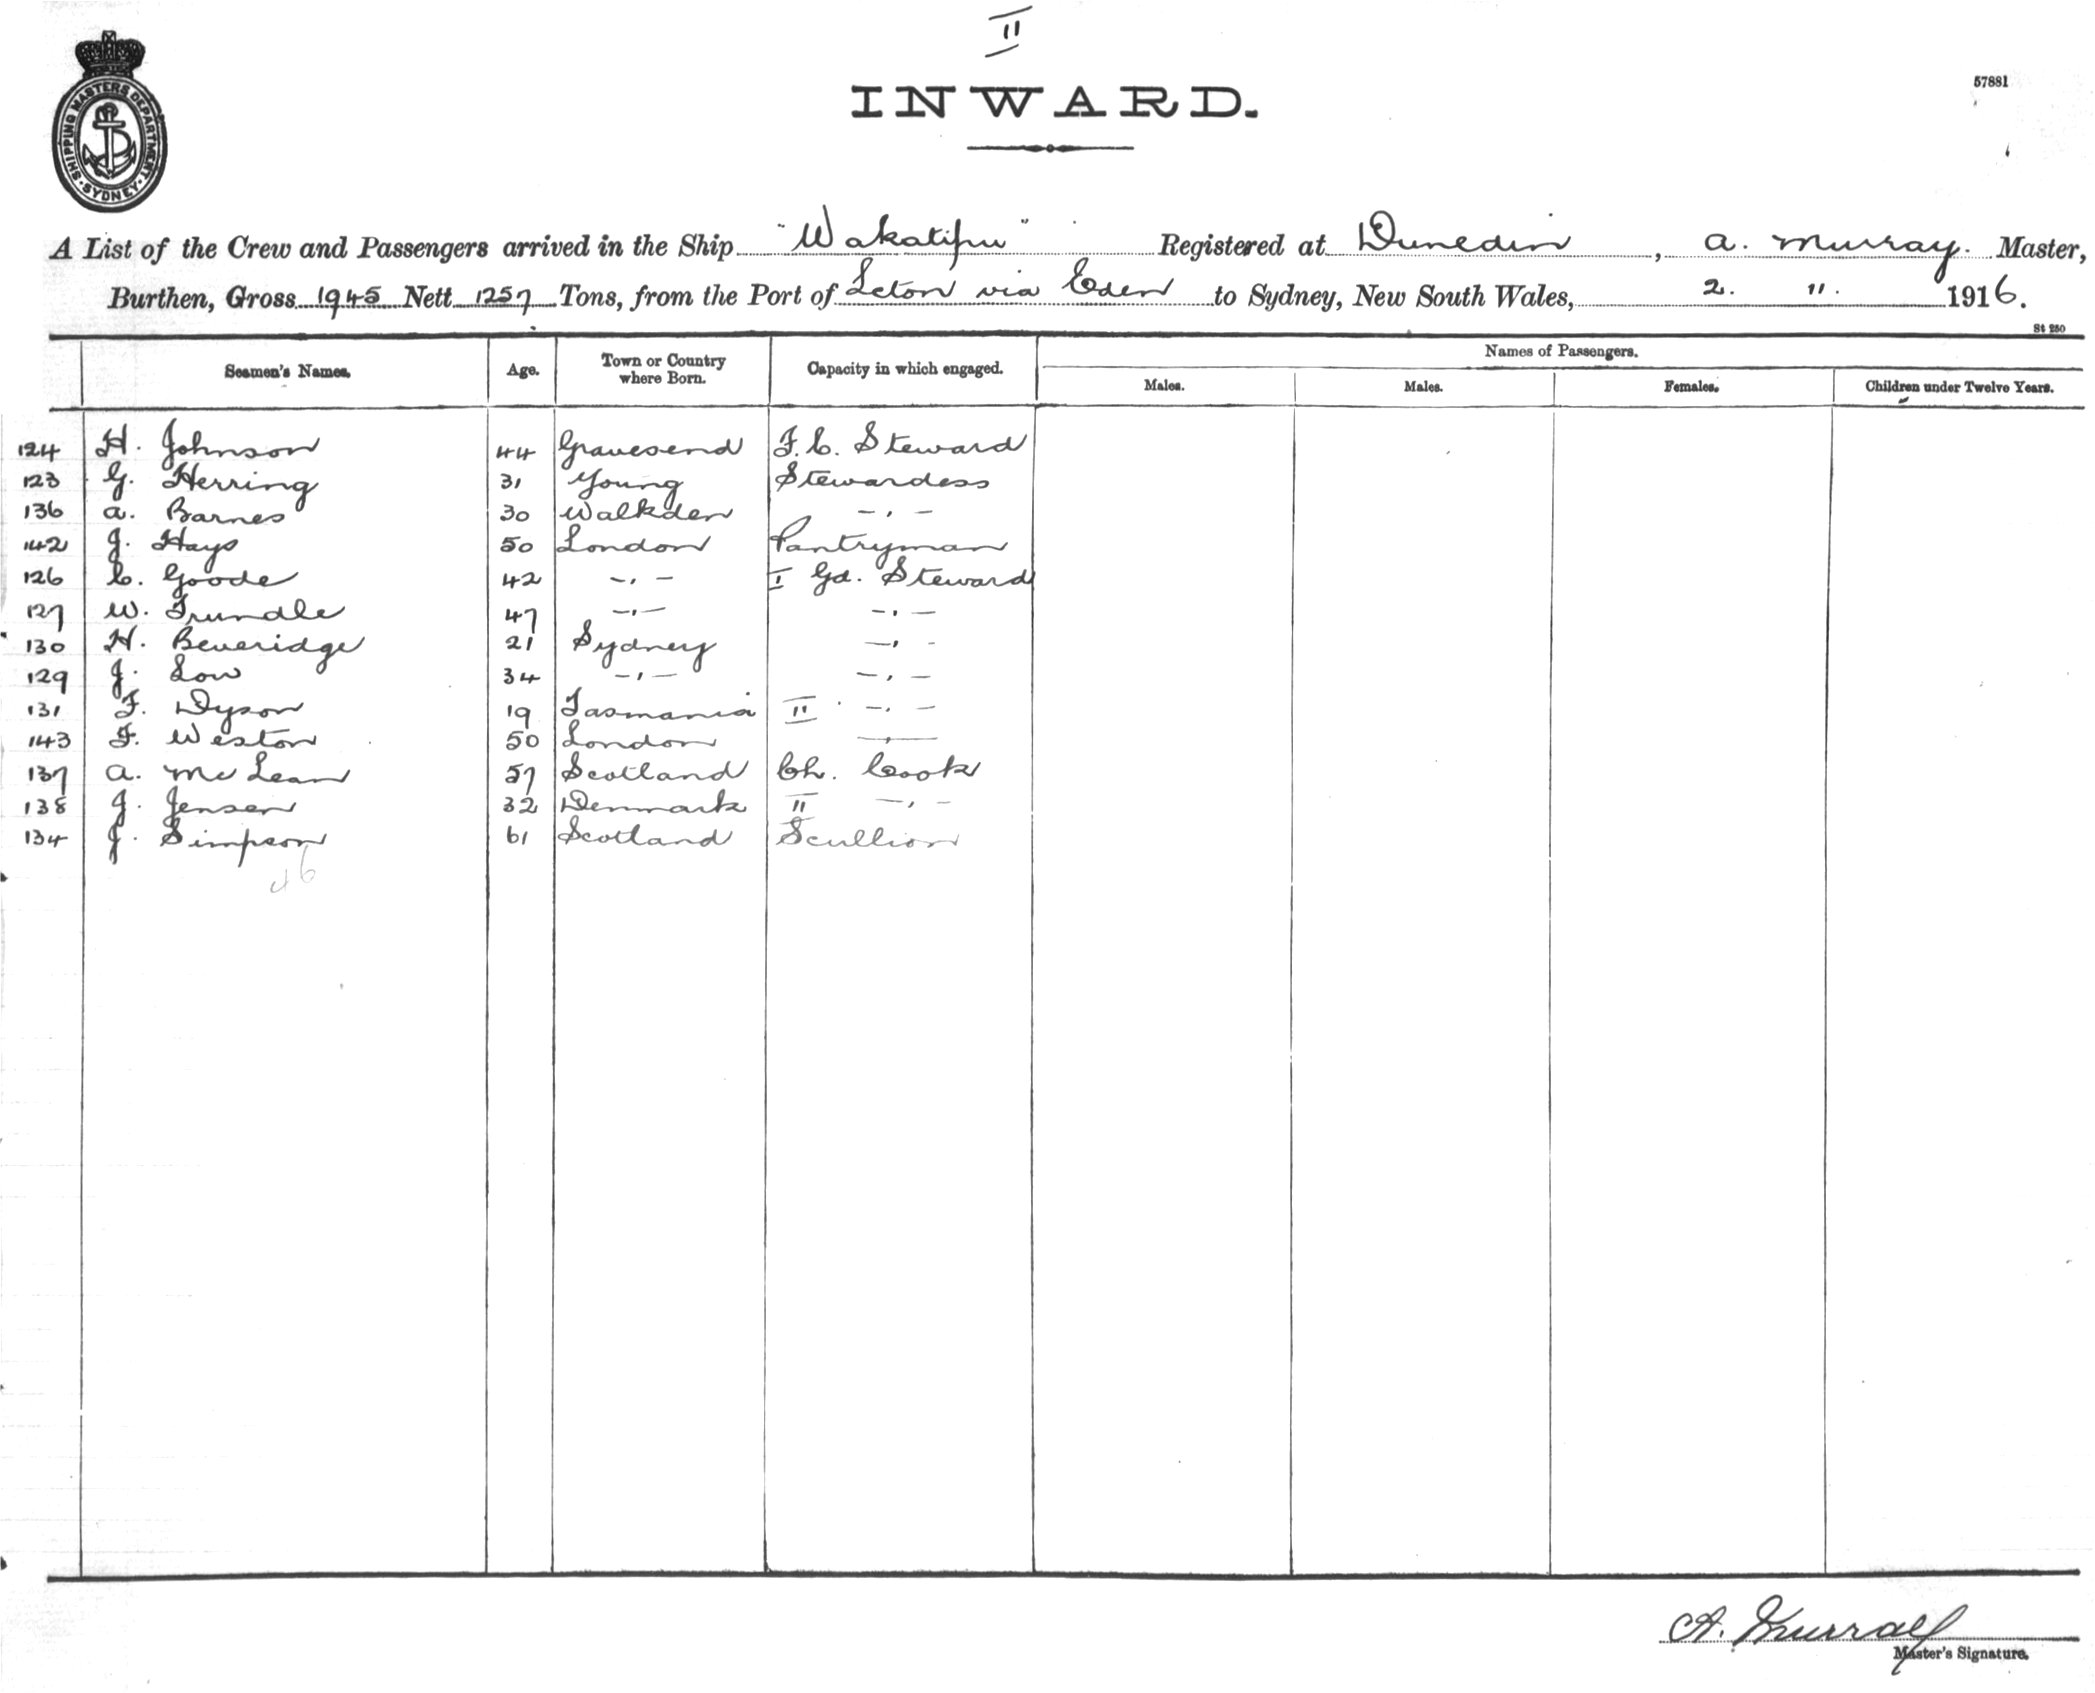 II
INWARD.
57881
SHIPPING MASTERS DEPARTMENT · SYDNEY ·
A List of the Crew and Passengers arrived in the Ship "Wakatipu" Registered at Dunedin, A. Murray. Master,
Burthen, Gross 1945 Nett 1257 Tons, from the Port of Lcton via Eden to Sydney, New South Wales, 2. 11. 1916.
St 250
Seamen's Names. Age. Town or Country where Born. Capacity in which engaged. Names of Passengers.
Males. Males. Females. Children under Twelve Years.
124 H. Johnson 44 Gravesend F.C. Steward
123 G. Herring 31 Young Stewardess
136 A. Barnes 30 Walkden -,-
142 J. Hays 50 London Pantryman
126 C. Goode 42 -,- I Gd. Steward
127 W. Trundle 47 -,- -,-
130 H. Beveridge 21 Sydney -,-
129 J. Low 34 -,- -,-
131 F. Dyson 19 Tasmania II -,-
143 F. Weston 50 London -,-
137 A. McLean 57 Scotland Ch. Cook
138 J. Jensen 32 Denmark II -,-
134 J. Simpson 61 Scotland Scullion
46
A. Murray
Master's Signature.